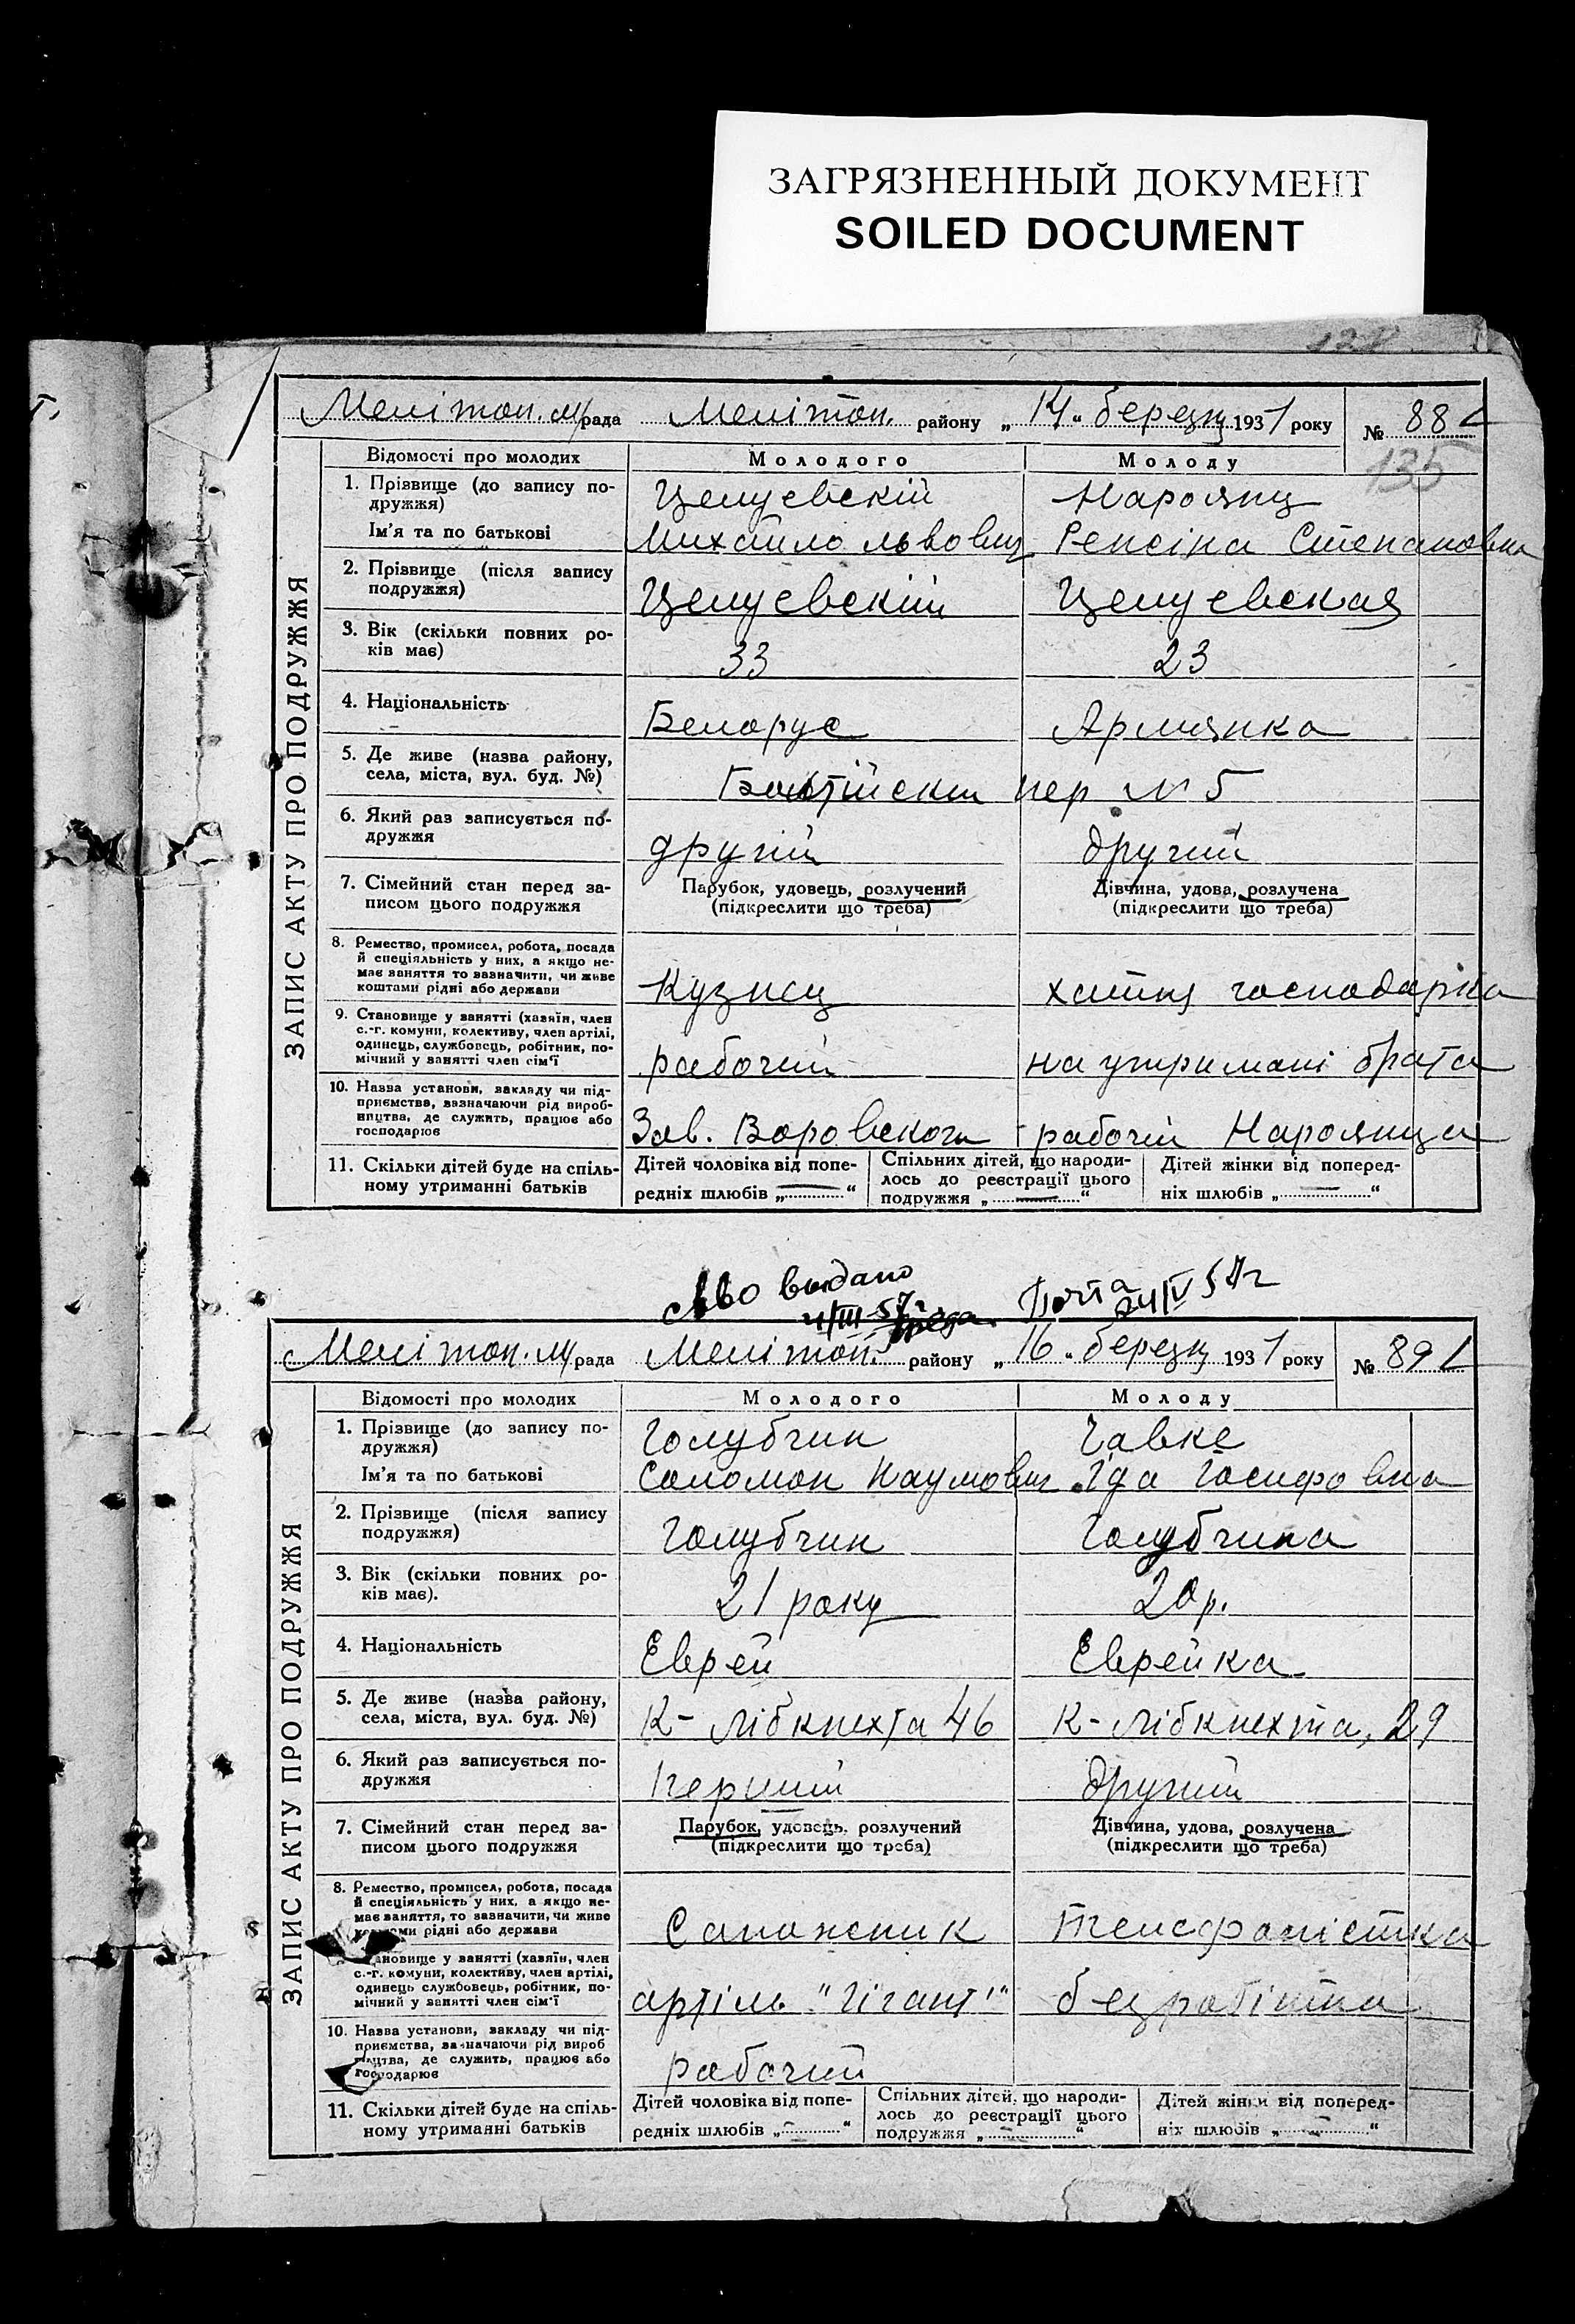 ЗАГРЯЗНЕННЫЙ ДОКУМЕНТ
SOILED DOCUMENT
ЗАПИС АКТУ ПРО ПОДРУЖЖЯ
Мелітоп. м/рада Мелітоп. району „14" березня 1931 року № 88
135
Відомості про молодих Молодого Молоду
1. Прізвище (до запису подружжя) Целуевскій Нароянц
Ім'я та по батькові Михайло Львович Степановна
2. Прізвище (після запису подружжя) Целуевскій Целуевская
3. Вік (скільки повних років має) 33 23
4. Національність Белорус Армянка
5. Де живе (назва району, села, міста, вул. буд. №) пер № 5
6. Який раз записується подружжя другій другий
7. Сімейний стан перед записом цього подружжя Парубок, удовець, розлучений (підкреслити що треба) Дівчина, удова, розлучена (підкреслити що треба)
8. Ремество, промисел, робота, посада й спеціяльність у них, а якщо немає заняття то зазначити, чи живе коштами рідні або держави Кузнец хатня господарка
9. Становище у занятті (хазяїн, член с.-г. комуни, колективу, член артілі, одинець, службовець, робітник, помічний у занятті член сім'ї рабочий на утримані брата
10. Назва установи, закладу чи підприємства, зазначаючи рід виробництва, де служить, працює або господарює Зав. Воровского рабочій Нароянца
11. Скільки дітей буде на спільному утриманні батьків Дітей чоловіка від попередніх шлюбів „—" Спільних дітей, що народилось до реєстрації цього подружжя „—" Дітей жінки від попередніх шлюбів „—"
выдано
ЗАПИС АКТУ ПРО ПОДРУЖЖЯ
Мелітоп. м/рада Мелітоп. району „16" березня 1931 року № 89
Відомості про молодих Молодого Молоду
1. Прізвище (до запису подружжя) Голубчин Гавке
Ім'я та по батькові Соломон Наумович Іда Іосифовна
2. Прізвище (після запису подружжя) Голубчин Голубчина
3. Вік (скільки повних років має). 21 року 20 р.
4. Національність Еврей Еврейка
5. Де живе (назва району, села, міста, вул. буд. №) К-Лібкнехта 46 К-Лібкнехта, 29
6. Який раз записується подружжя перший другий
7. Сімейний стан перед записом цього подружжя Парубок, удовець, розлучений (підкреслити що треба) Дівчина, удова, розлучена (підкреслити що треба)
8. Ремество, промисел, робота, посада й спеціяльність у них, а якщо немає заняття, то зазначити, чи живе рідні або держави Сапожник Телефоністка
у занятті (хазяїн, член с.-г. комуни, колективу, член артілі, одинець службовець, робітник, помічний у занятті член сім'ї артіль "Гігант" безробітна
10. Назва установи, закладу чи підприємства, зазначаючи рід вироб де служить, працює або господарює рабочий
11. Скільки дітей буде на спільному утриманні батьків Дітей чоловіка від попередніх шлюбів „—" Спільних дітей, що народилось до реєстрації цього подружжя „—" Дітей жінки від попередніх шлюбів „—"